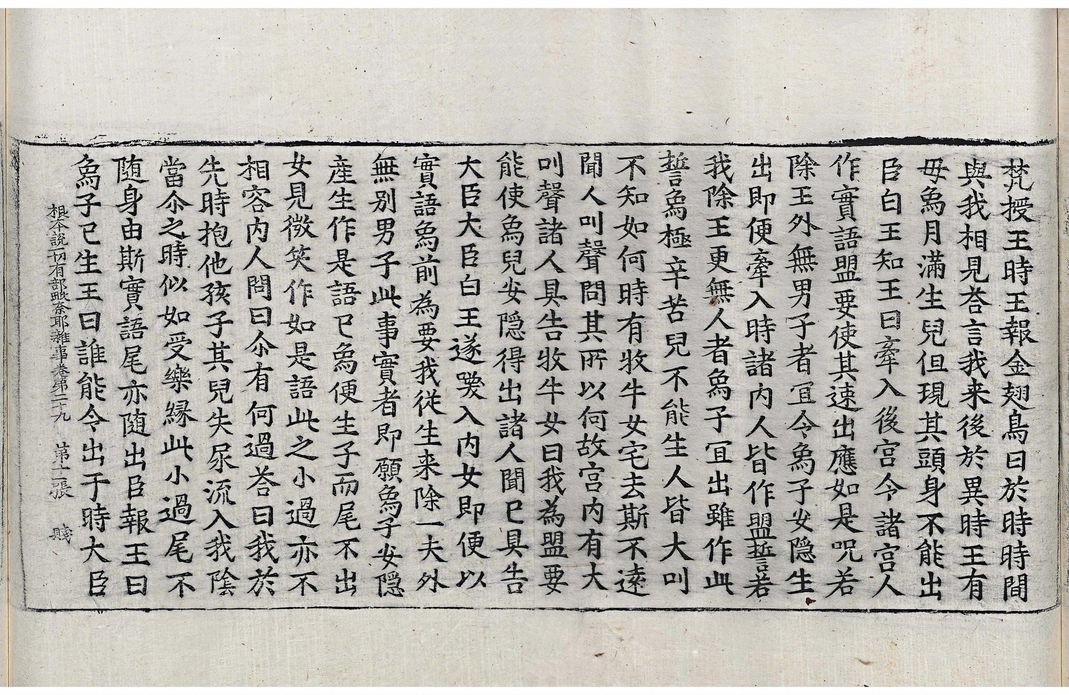 梵授王時王報金翅鳥曰於時時間
與我相見荅言我来後於異時王有
母𤉢月滿生兒但現其頭身不能出
臣白王知王曰牽入後宮令諸宮人
作實語盟要使其速出應如是呪若
除王外無男子者冝令𤉢子安隱生
出即便牽入時諸内人皆作盟誓若
我除王更無人者𤉢子冝出雖作此
誓𤉢極辛苦兒不能生人皆大叫
不知如何時有牧牛女宅去斯不遠
聞人叫聲問其所以何故宮内有大
叫聲諸人具告牧牛女曰我為盟要
能使𤉢兒安隱得出諸人聞已具告
大臣大臣白王遂喚入内女即便以
實語𤉢前為要我從生来除一夫外
無別男子此事實者即願𤉢子安隱
産生作是語已𤉢便生子而尾不出
女見微笑作如是語此之小過亦不
相容内人問曰尒有何過荅曰我於
先時抱他孩子其兒失尿流入我陰
當尒之時似如受樂縁此小過尾不
随身由斯實語尾亦随出臣報王曰
𤉢子已生王曰誰能令出于時大臣
根本說一切有部毗奈耶雜事卷第二十九 第十二張 賤